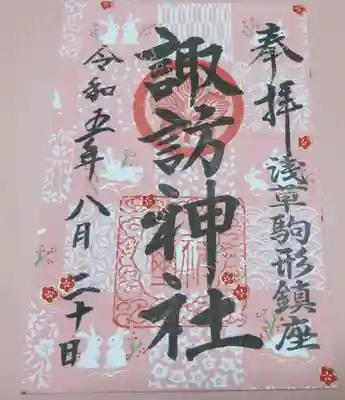 奉拝
浅草駒形鎮座
諏訪神社
令和五年八月二十日